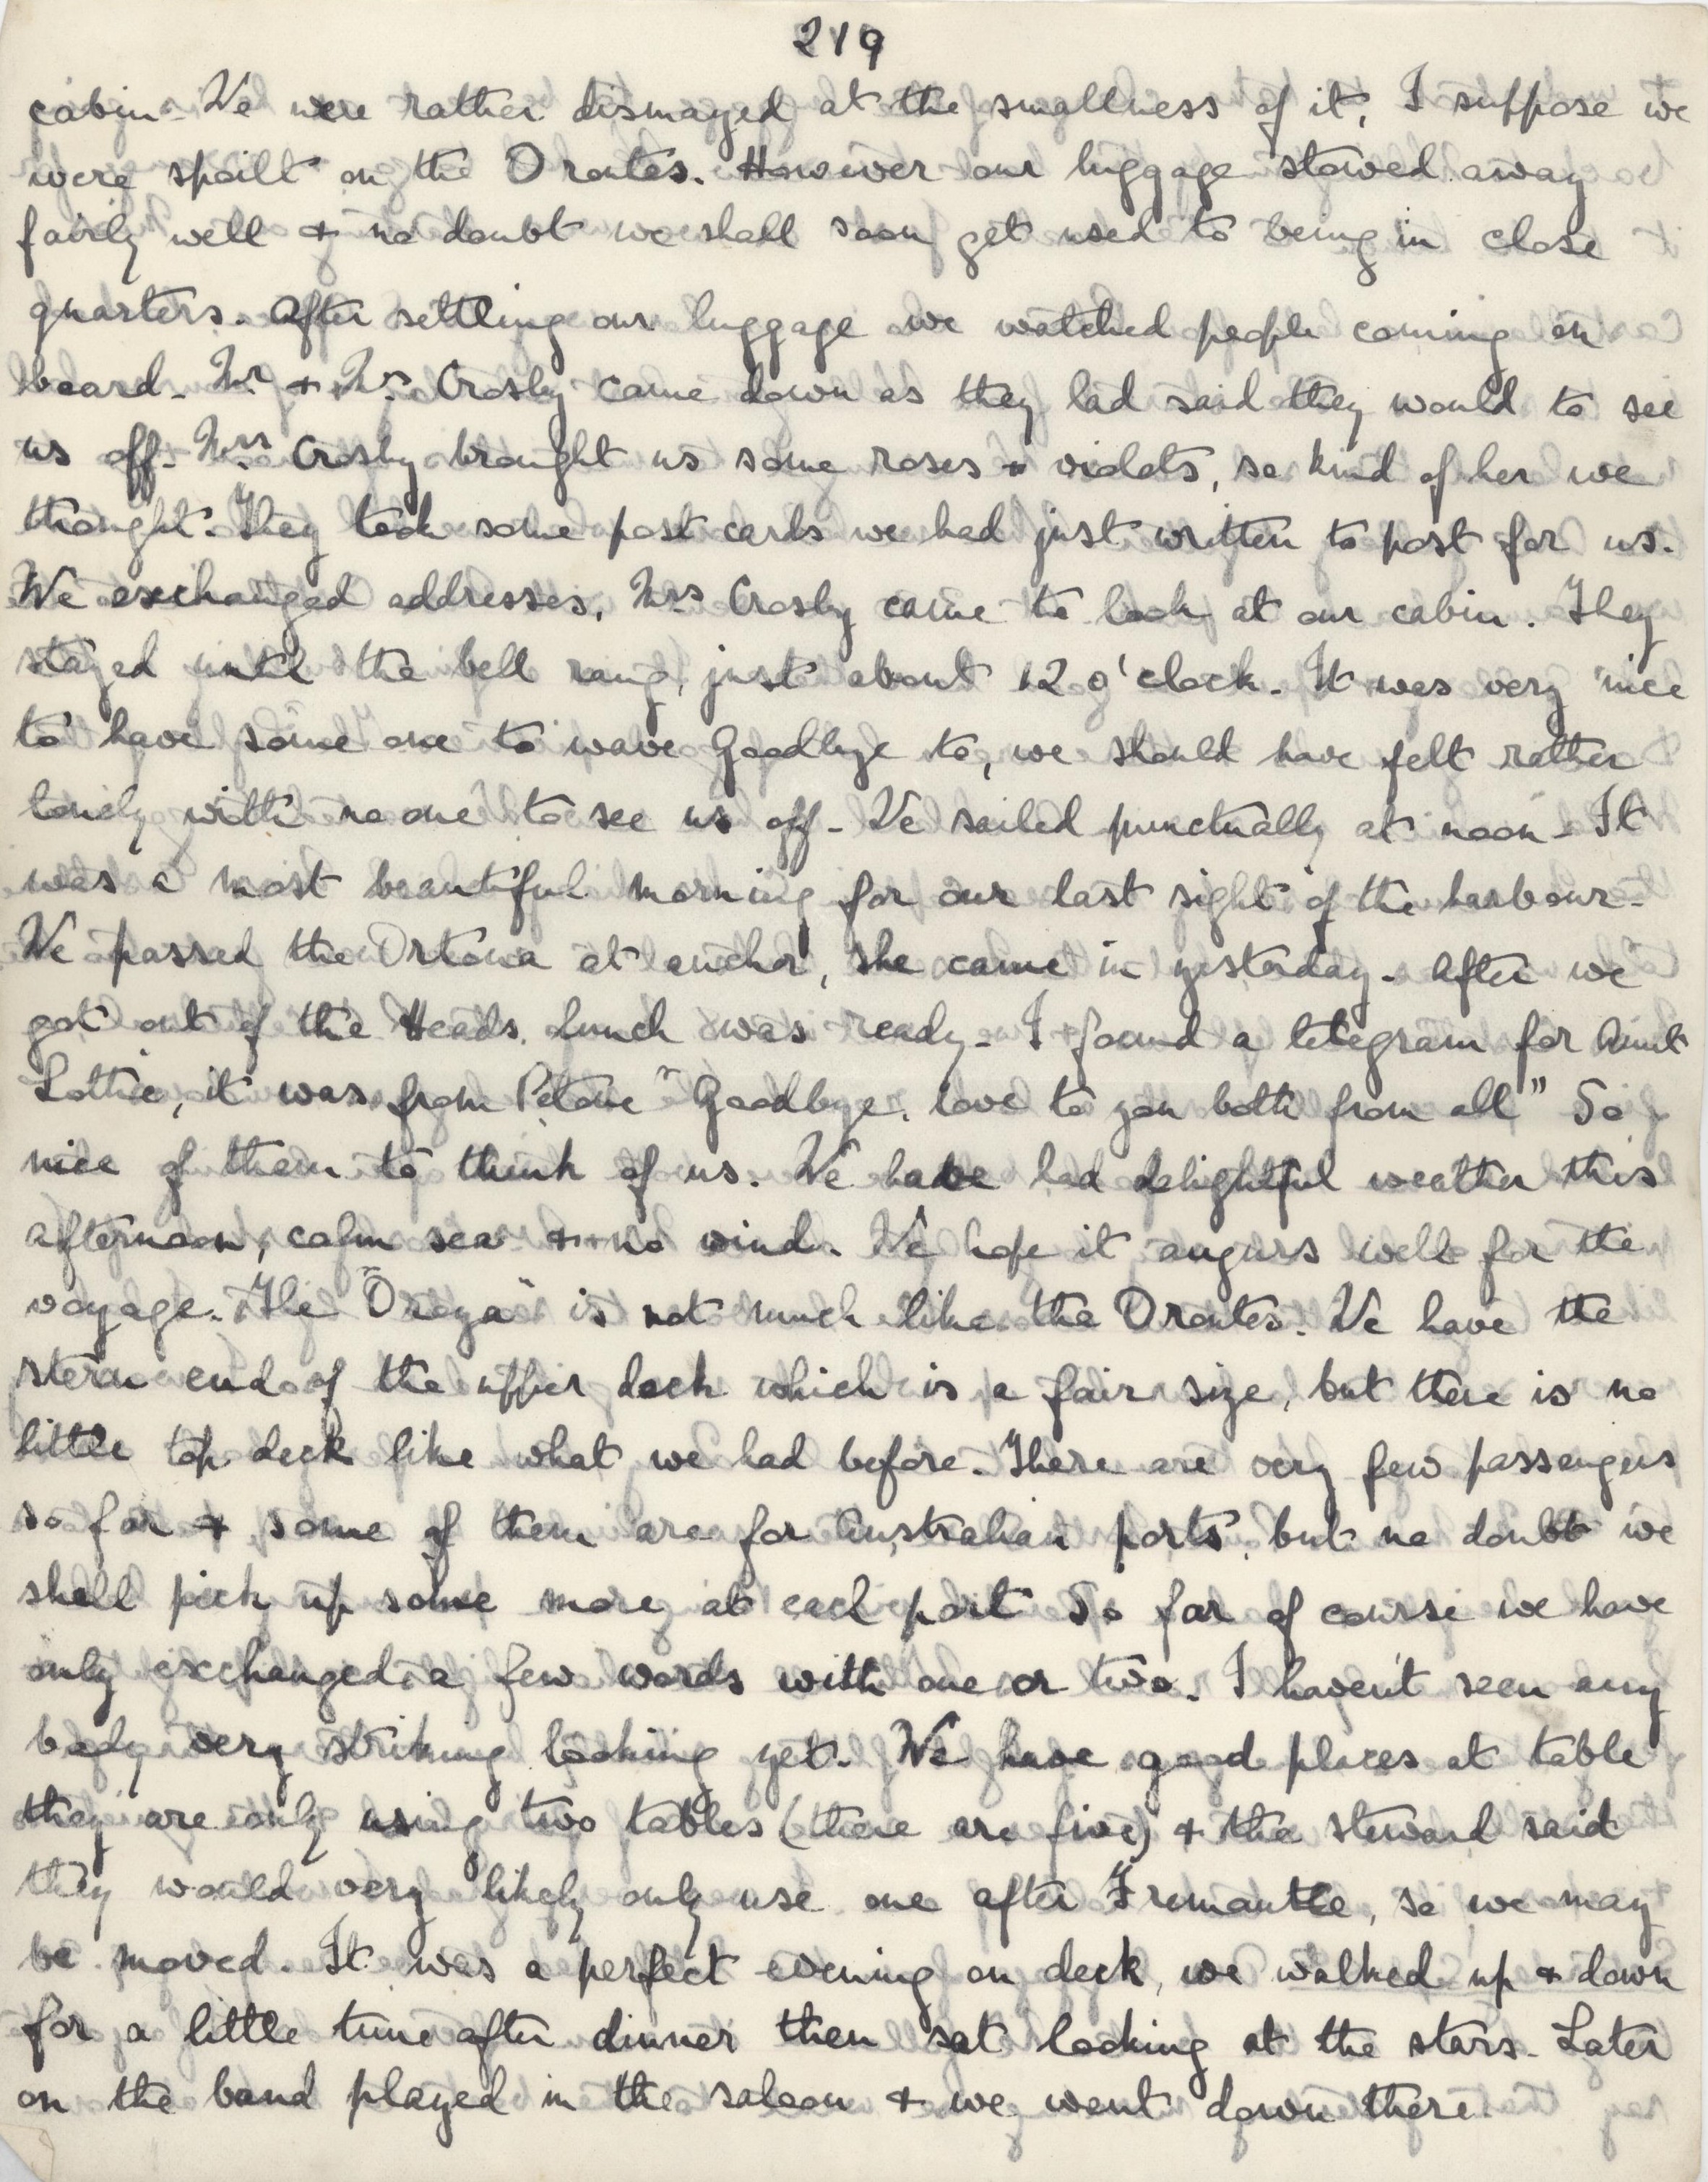 219
cabin - We were rather dismayed at the smallness of it, I suppose we
were spoilt on the Orontes. However our luggage stowed away
fairly well & no doubt we shall soon get used to being in close
quarters. After settling our luggage we watched people coming on
board - Mr & Mrs Crosby came down as they had said they would to see
us off - Mrs Crosby brought us some roses & violets, so kind of her we
thought. They took some post cards we had just written to post for us.
We exchanged addresses, Mrs Crosby came to look at our cabin. They
stayed until the bell rang, just about 12 o'clock - It was very nice
to have some one to wave Goodbye to, we should have felt rather
lonely with no one to see us off - We sailed punctually at noon - It
was a most beautiful morning for our last sight of the harbour -
We passed the Ortona at anchor, she came in yesterday - After we
got out of the Heads, lunch was ready - I found a telegram for Aunt
Lottie, it was from Petone "Goodbye, love to you both from all" So
nice of them to think of us. We have had delightful weather this
afternoon, calm sea & no wind. We hope it augurs well for the
voyage. The "Oroya" is not much like the Orontes. We have the
stern end of the upper deck which is a fair size, but there is no
little top deck like what we had before. There are very few passengers
so far & some of them are for Australian ports, but no doubt we
shall pick up some more at each port So far of course we have
only exchanged a few words with one or two. I haven't seen any
body very striking looking yet. We have good places at table
they are only using two tables (there are five) & the steward said
they would very likely only use one after Fremantle, so we may
be moved. It was a perfect evening on deck, we walked up & down
for a little time after dinner then sat looking at the stars - Later
on the band played in the saloon & we went down there.